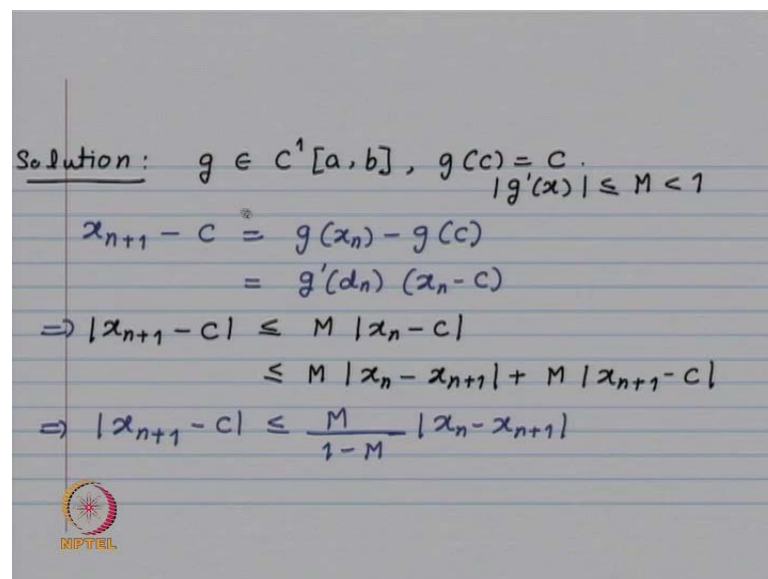 Solution: g ∈ C¹[a, b], g(c) = c.
|g'(x)| ≤ M < 1
xₙ₊₁ − c = g(xₙ) − g(c)
= g'(dₙ) (xₙ − c)
⇒ |xₙ₊₁ − c| ≤ M |xₙ − c|
≤ M |xₙ − xₙ₊₁| + M |xₙ₊₁ − c|
⇒ |xₙ₊₁ − c| ≤ M/(1−M) |xₙ − xₙ₊₁|
NPTEL